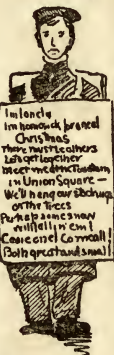 I'm lonely
I'm homesick for a real
Christmas
There must be others
Let's get together
Meet me at the Tavdam
in Union Square —
We'll hang our stockings
on the Trees
Perhaps some snow
will fall in 'em!
Come one! Come all!
Both great and small!